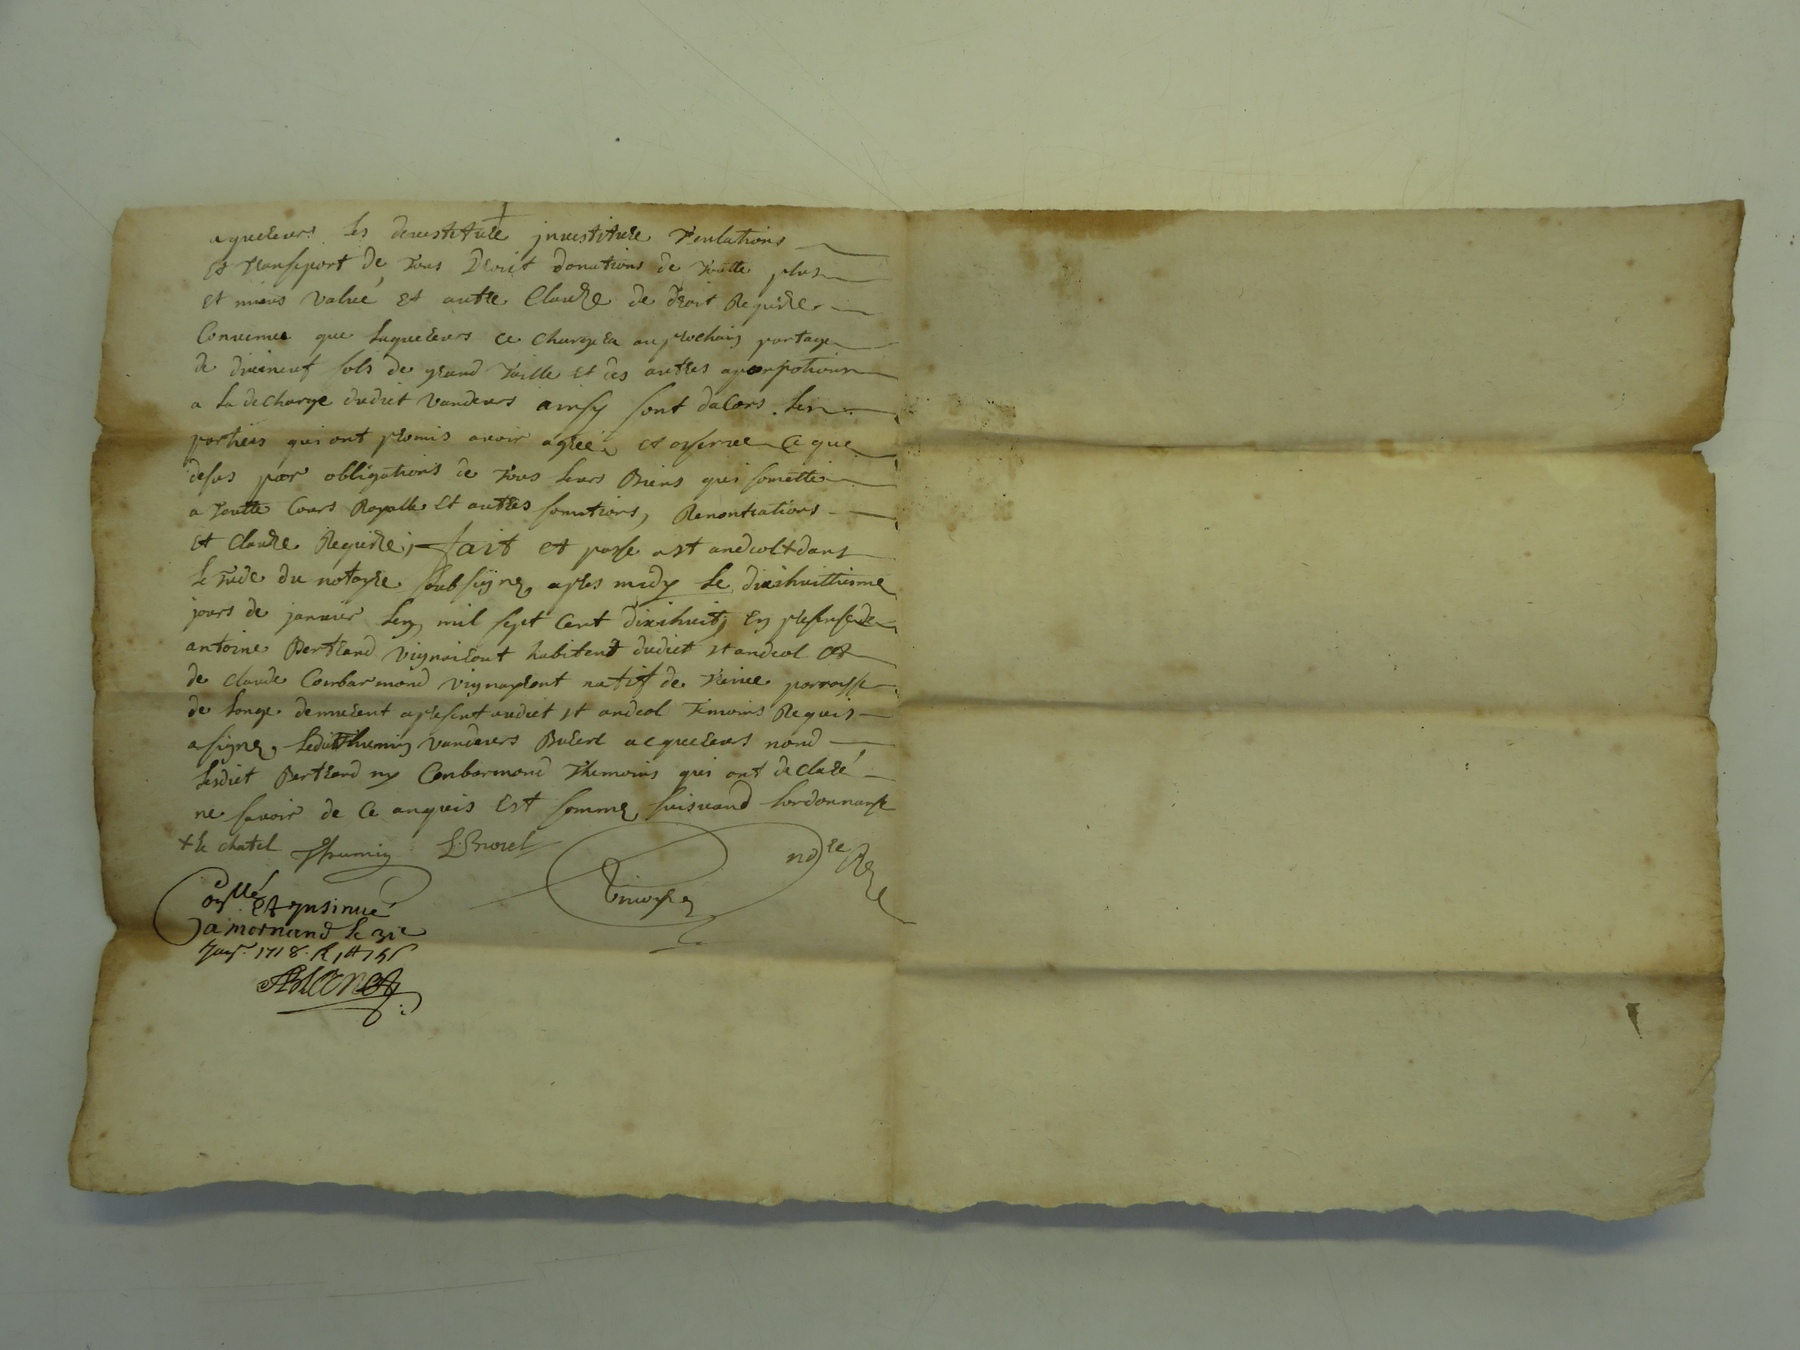 aquereurs les devestiture jnvestiture
et transport de tous droit donations de toutte plus
et mieus value et autre Clauze de droit Requize
Convenue que laquereurs ce chargera au prochain partage
de dixineuf sols de grand taille et des autres
a la decharge dudict vandeurs ainsy sont dacors les
parties qui ont promis avoir agreé et ce que
desus par obligations de tous leurs Biens qui
a toutte Cours Royalle et autres somitions, Renontiations
et clauze Requize, fait et passé a st andeol dans
le du notayre soubsigne apres midy le dixihuittiesme
jours de janvier mil sept cent dixihuit, en presense de
antoine Bertrand vigneront habitent dudict st andeol et
de claude Combarmond vignayront natif de paroysse
de longe demeurent apresent audict st andeol temoins Requis
a signe, ledit thumin vandeurs acquereurs nond
lesdict Bertrand ny Conbarmond themoins qui ont declaré
ne savoir de ce anquis est somme suivand lordonnanse
+ le chatel Thumin
et jnsinué
a mornand le 31e
Janr. 1718.